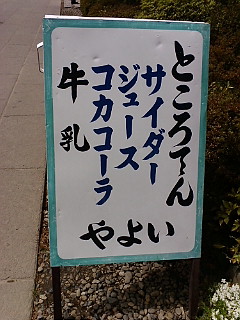 ところてん
サイダー
ジュース
コカコーラ
牛乳
やよい